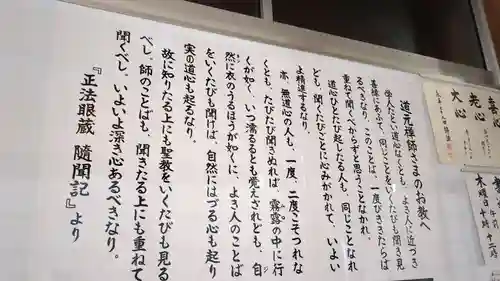 道元禅師さまのお教へ
学人たとい道心なくとも、よき人に近づき
善縁にあふて、同じことをいくたびも聞き見
るべきなり。このことば、一度ききたらば
重ねて聞くべからずと思うことなかれ。
道心ひとたび起したる人も、同じことなれ
ども、聞くたびごとに心みがかれて、いよい
よ精進するなり。
亦、無道心の人も、一度、二度こそつれな
くとも、たびたび聞きぬれば、霧露の中に行
くが如く、いつ濡るるとも覚えざれども、自
然に衣のうるほうが如くに、よき人のことば
をいくたびも聞けば、自然にはづる心も起り
実の道心も起るなり。
故に知りたる上にも聖教をいくたびも見る
べし、師のことばも、聞きたる上にも重ねて
聞くべし。いよいよ深き心あるべきなり。
『正法眼蔵 随聞記』より
喜心
老心
大心